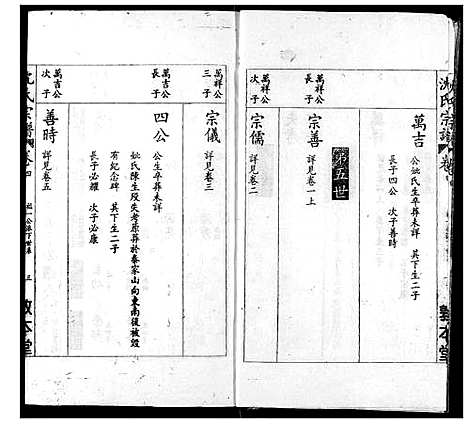 沈氏宗譜
敦本堂
萬吉
公姚氏生卒葬未詳 其下生二子
長子四公 次子善時
第五世
萬祥公
長子
宗善
詳見卷一上
萬祥公
次子
宗儒
詳見卷二
萬祥公
三子
宗儀
詳見卷三
萬吉公
長子
四公
公生卒葬未詳
姚氏陳生歿失考原葬於秦家山向東南後被毀
有紀念碑 其下生二子
長子必耀 次子必康
萬吉公
次子
善時
詳見卷五
沈氏宗譜 卷四
三
敦本堂